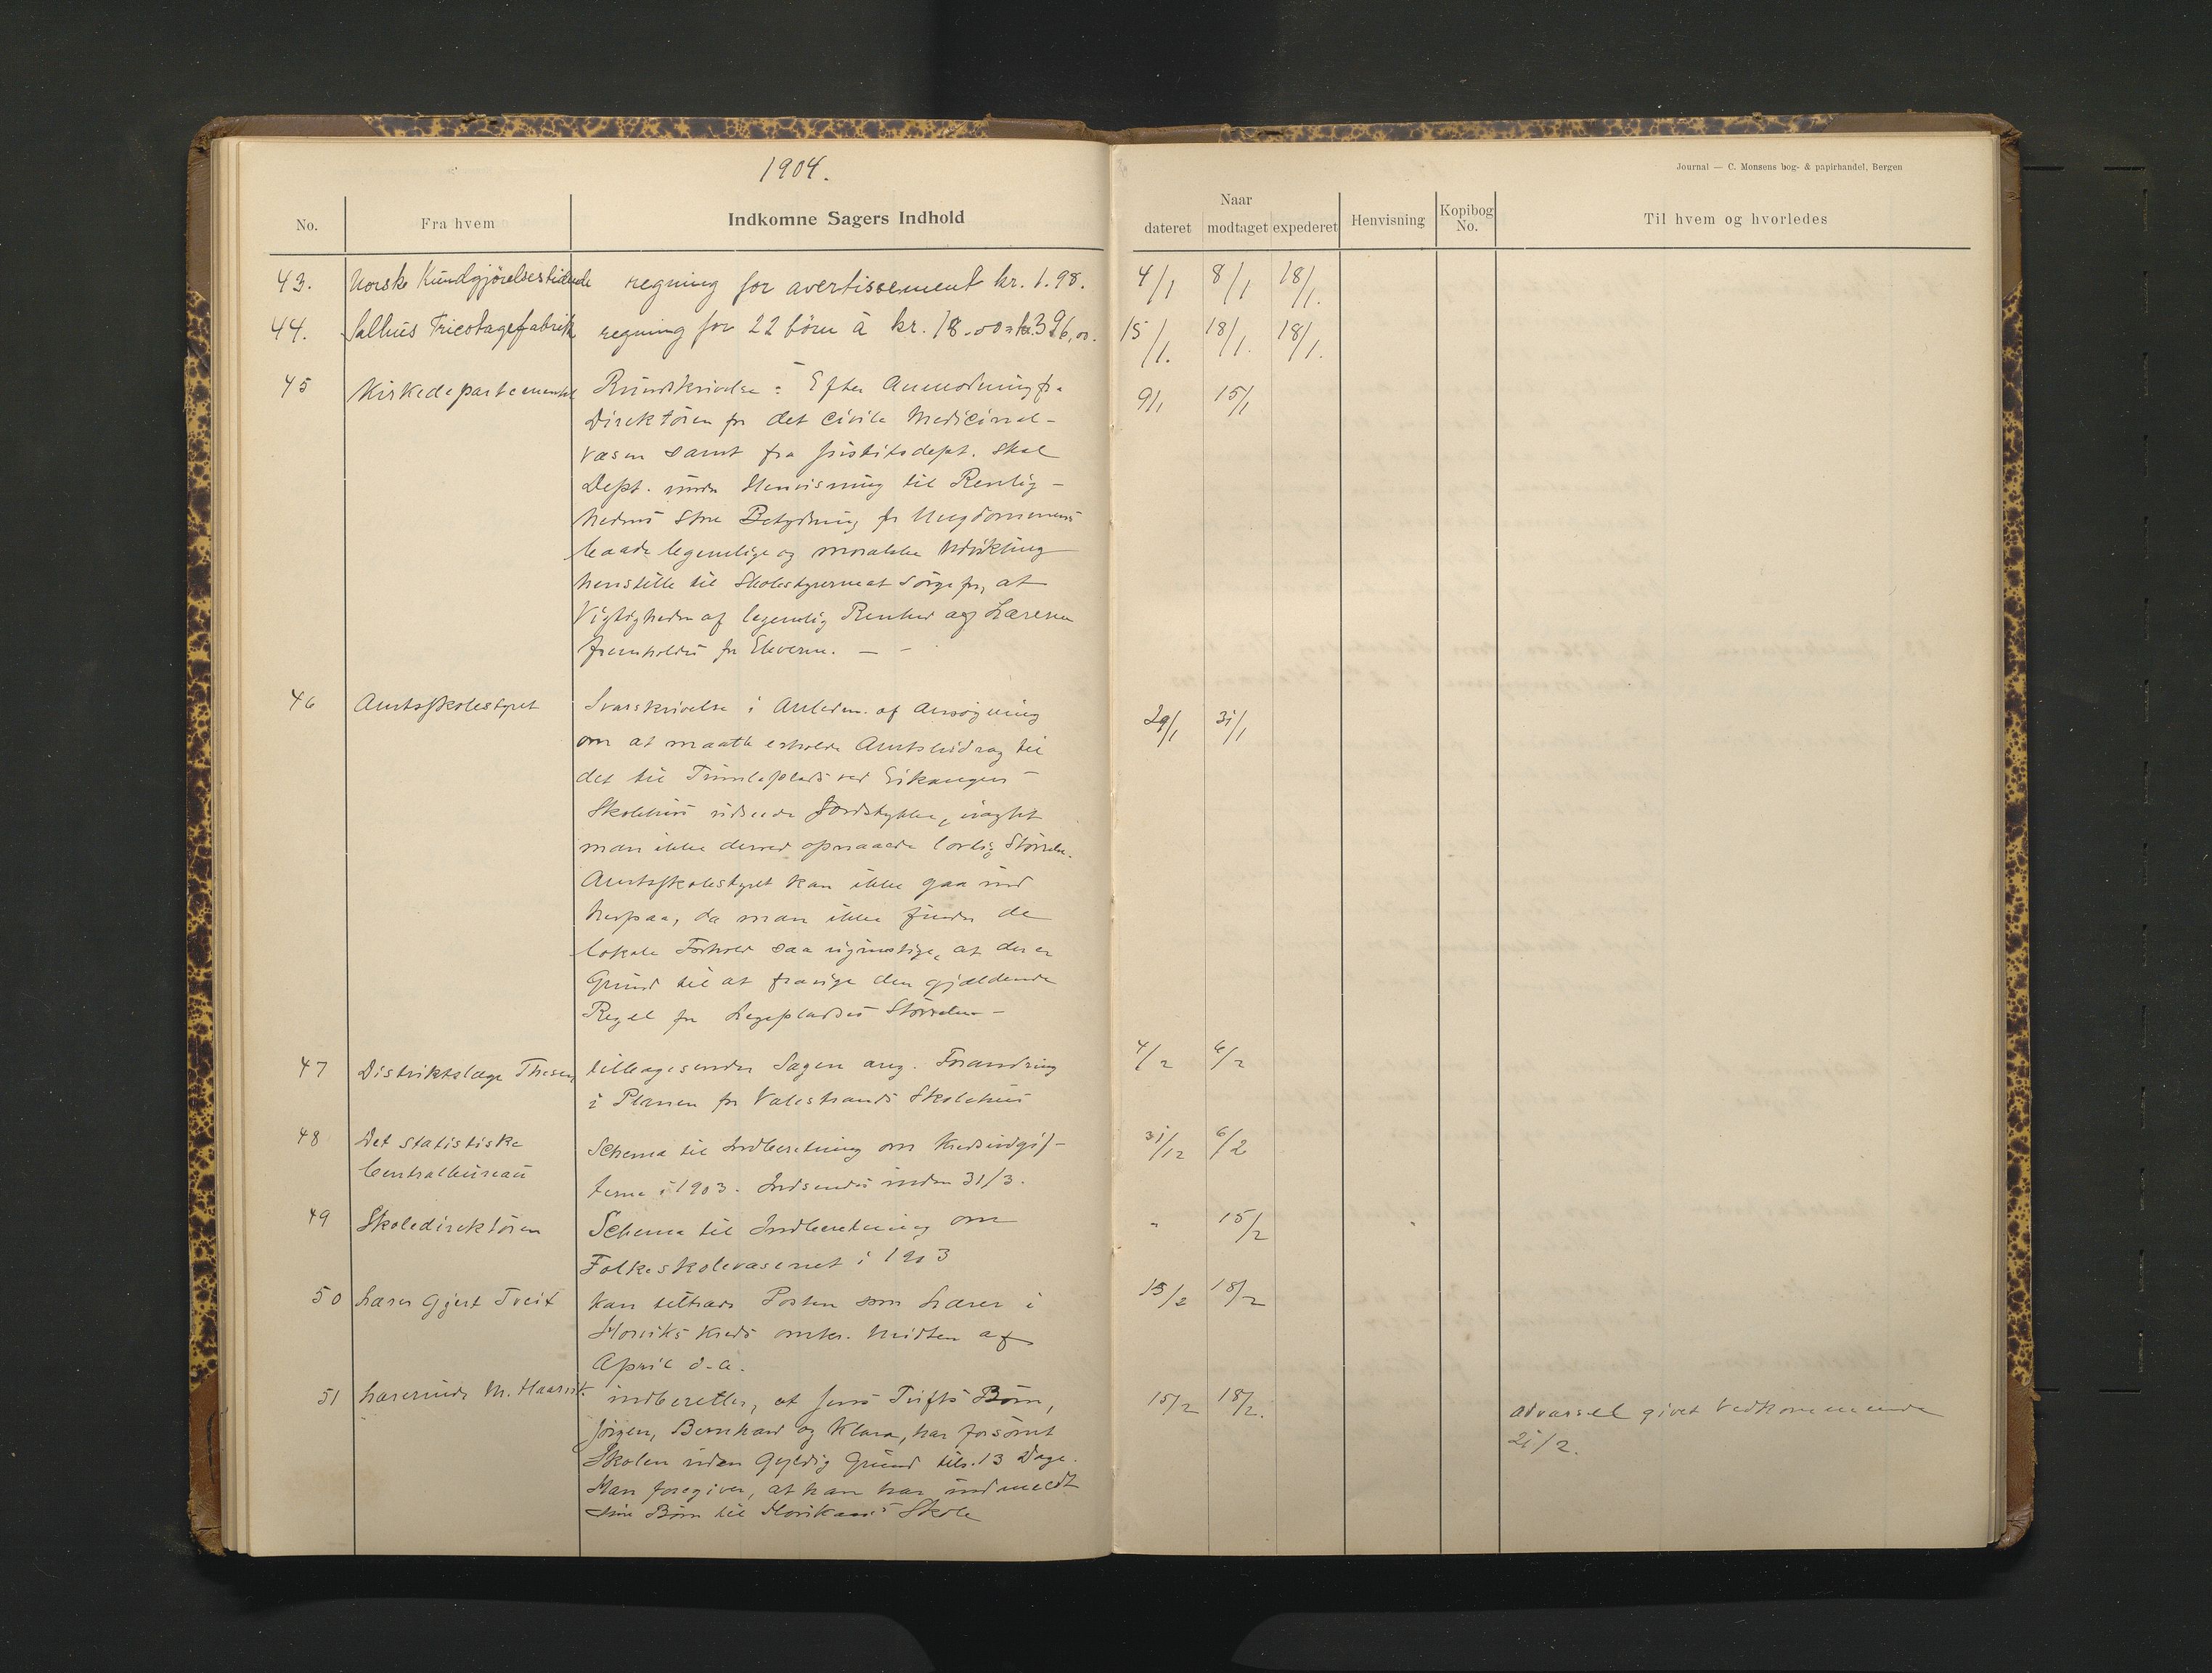 1904.
Journal — C. Monsens bog- & papirhandel, Bergen
No. Fra hvem Indkomne Sagers Indhold
Naar
dateret modtaget expederet Henvisning Kopibog No. Til hvem og hvorledes
43. Norske Kundgjørelsestidende regning for avertissement kr. 1.98. 4/1 8/1 18/1.
44. Salhus Tricotagefabrik regning for 22 börn à kr. 18.00 = kr. 396,00. 15/1. 18/1. 18/1.
45 Kirkedepartementet Rundskrivelse: Efter Anmodning fra 9/1 15/1
Direktören for det civile Medicinal-
væsen samt fra Justitsdept. skal
Dept. under Henvisning til Renlig-
hedens store Betydning for Ungdommens
baade legemlige og moralske Udvikling
henstille til Skolestyrerne at sörge for, at
Vigtigheden af legemlig Renhed af Læreren
fremholdes for Eleverne. — -
46 Amtsskolestyret Svarskrivelse i Anledn. af Ansögning 29/1 31/1
om at maatte erholde Amtsbidrag til
det til Tumleplads ved Eikanger-
Skolehus udseede Jordstykke, uagtet
man ikke derved opnaaede lovlig Störrelse.
Amtsskolestyret kan ikke gaa ind
herpaa, da man ikke finder de
lokale Forhold saa ugunstige, at der er
Grund til at fravige den gjældende
Regel for Legepladses Störrelse —
47 Distriktslæge Thesen tilbagesender Sagen ang. Forandring 4/2 6/2
i Planen for Valestrands Skolehus
48 Det statistiske Schema til Indberetning om Kredsudgif- 31/12 6/2
Centralbureau terne i 1903. Indsendes inden 31/3.
49 Skoledirektören Schema til Indberetning om - 15/2
Folkeskolevæsenet i 1903
50 Lærer Gjert Tveit kan tiltræde Posten som Lærer i 15/2 18/2
Horviks Kreds omkr. Midten af
April d.a.
51 Lærerinde M. Haarvik. indberetter, at Jens Tufts Börn, 15/2 18/2. Advarsel givet Vedkommende
Jörgen, Bernhard og Klara, har forsömt 21/2.
Skolen uden gyldig Grund tils. 13 Dage.
Han foregiver, at han har indmeldt
sine Börn til Skole